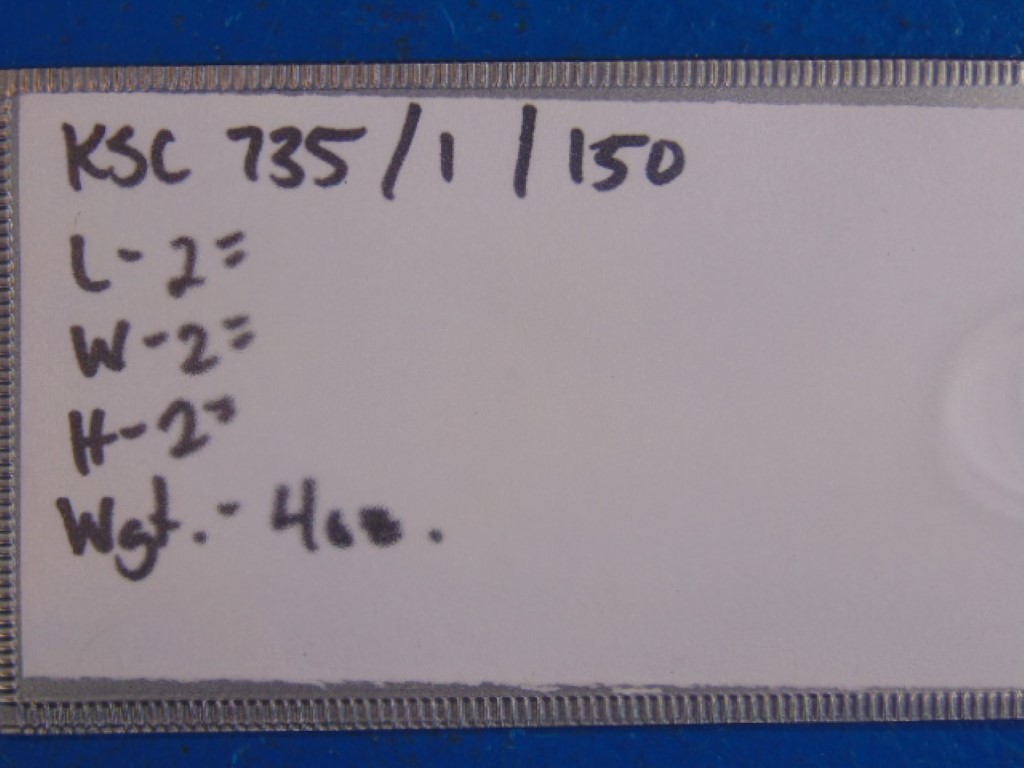 KSC 735/1/150
L-2"
W-2"
H-2"
Wgt.-4oz.